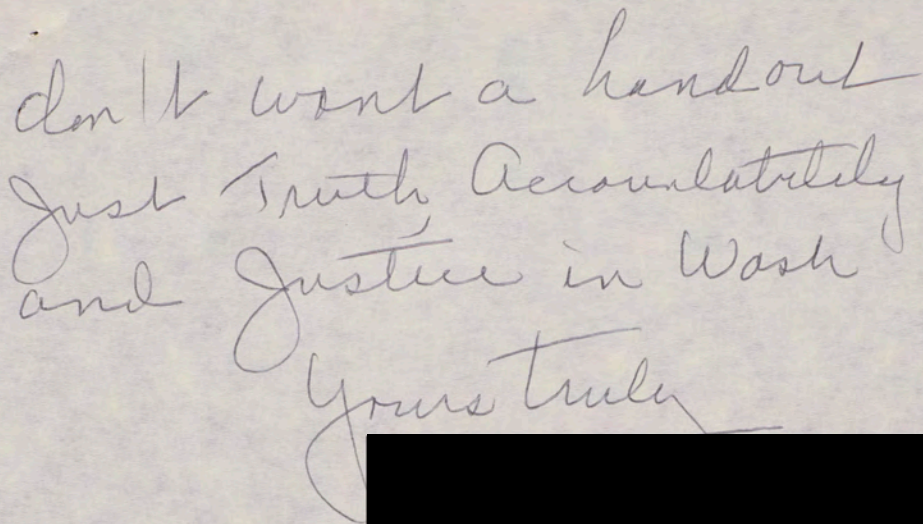 don't want a handout
Just Truth, Accountability
and Justice in Wash
Yours Truly